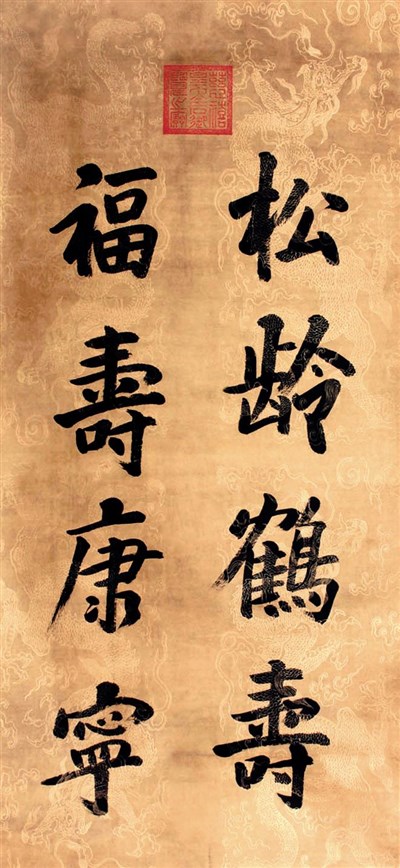 松龄鶴壽
福壽康寧